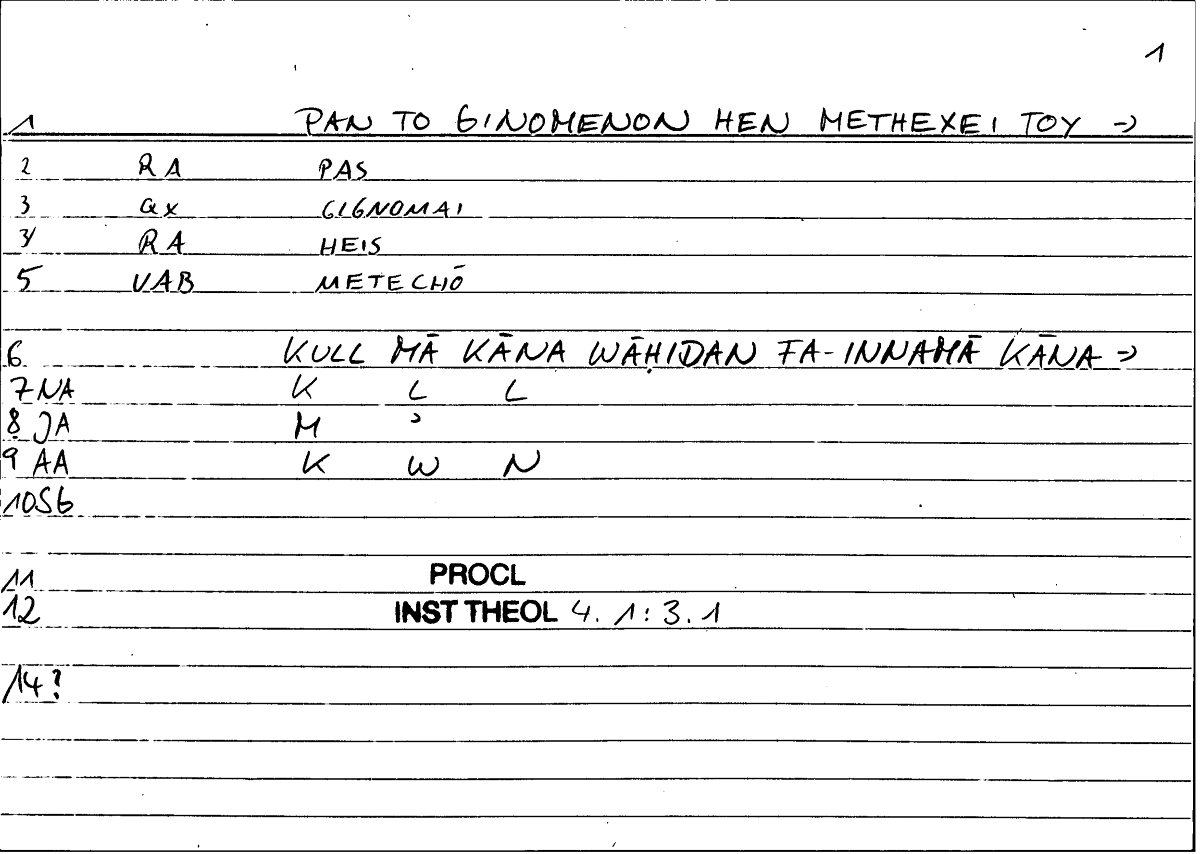 1
1 PAN TO GINOMENON HEN METHEXEI TOY →
2 RA PAS
3 QX GIGNOMAI
RA HEIS
5 VAB METECHŌ
6 KULL MĀ KĀNA WĀḤIDAN FA-INNAMĀ KĀNA →
7 NA K L L
8 JA M ʾ
9 AA K W N
10 Sb
11 PROCL
12 INST THEOL 4. 1: 3. 1
14?